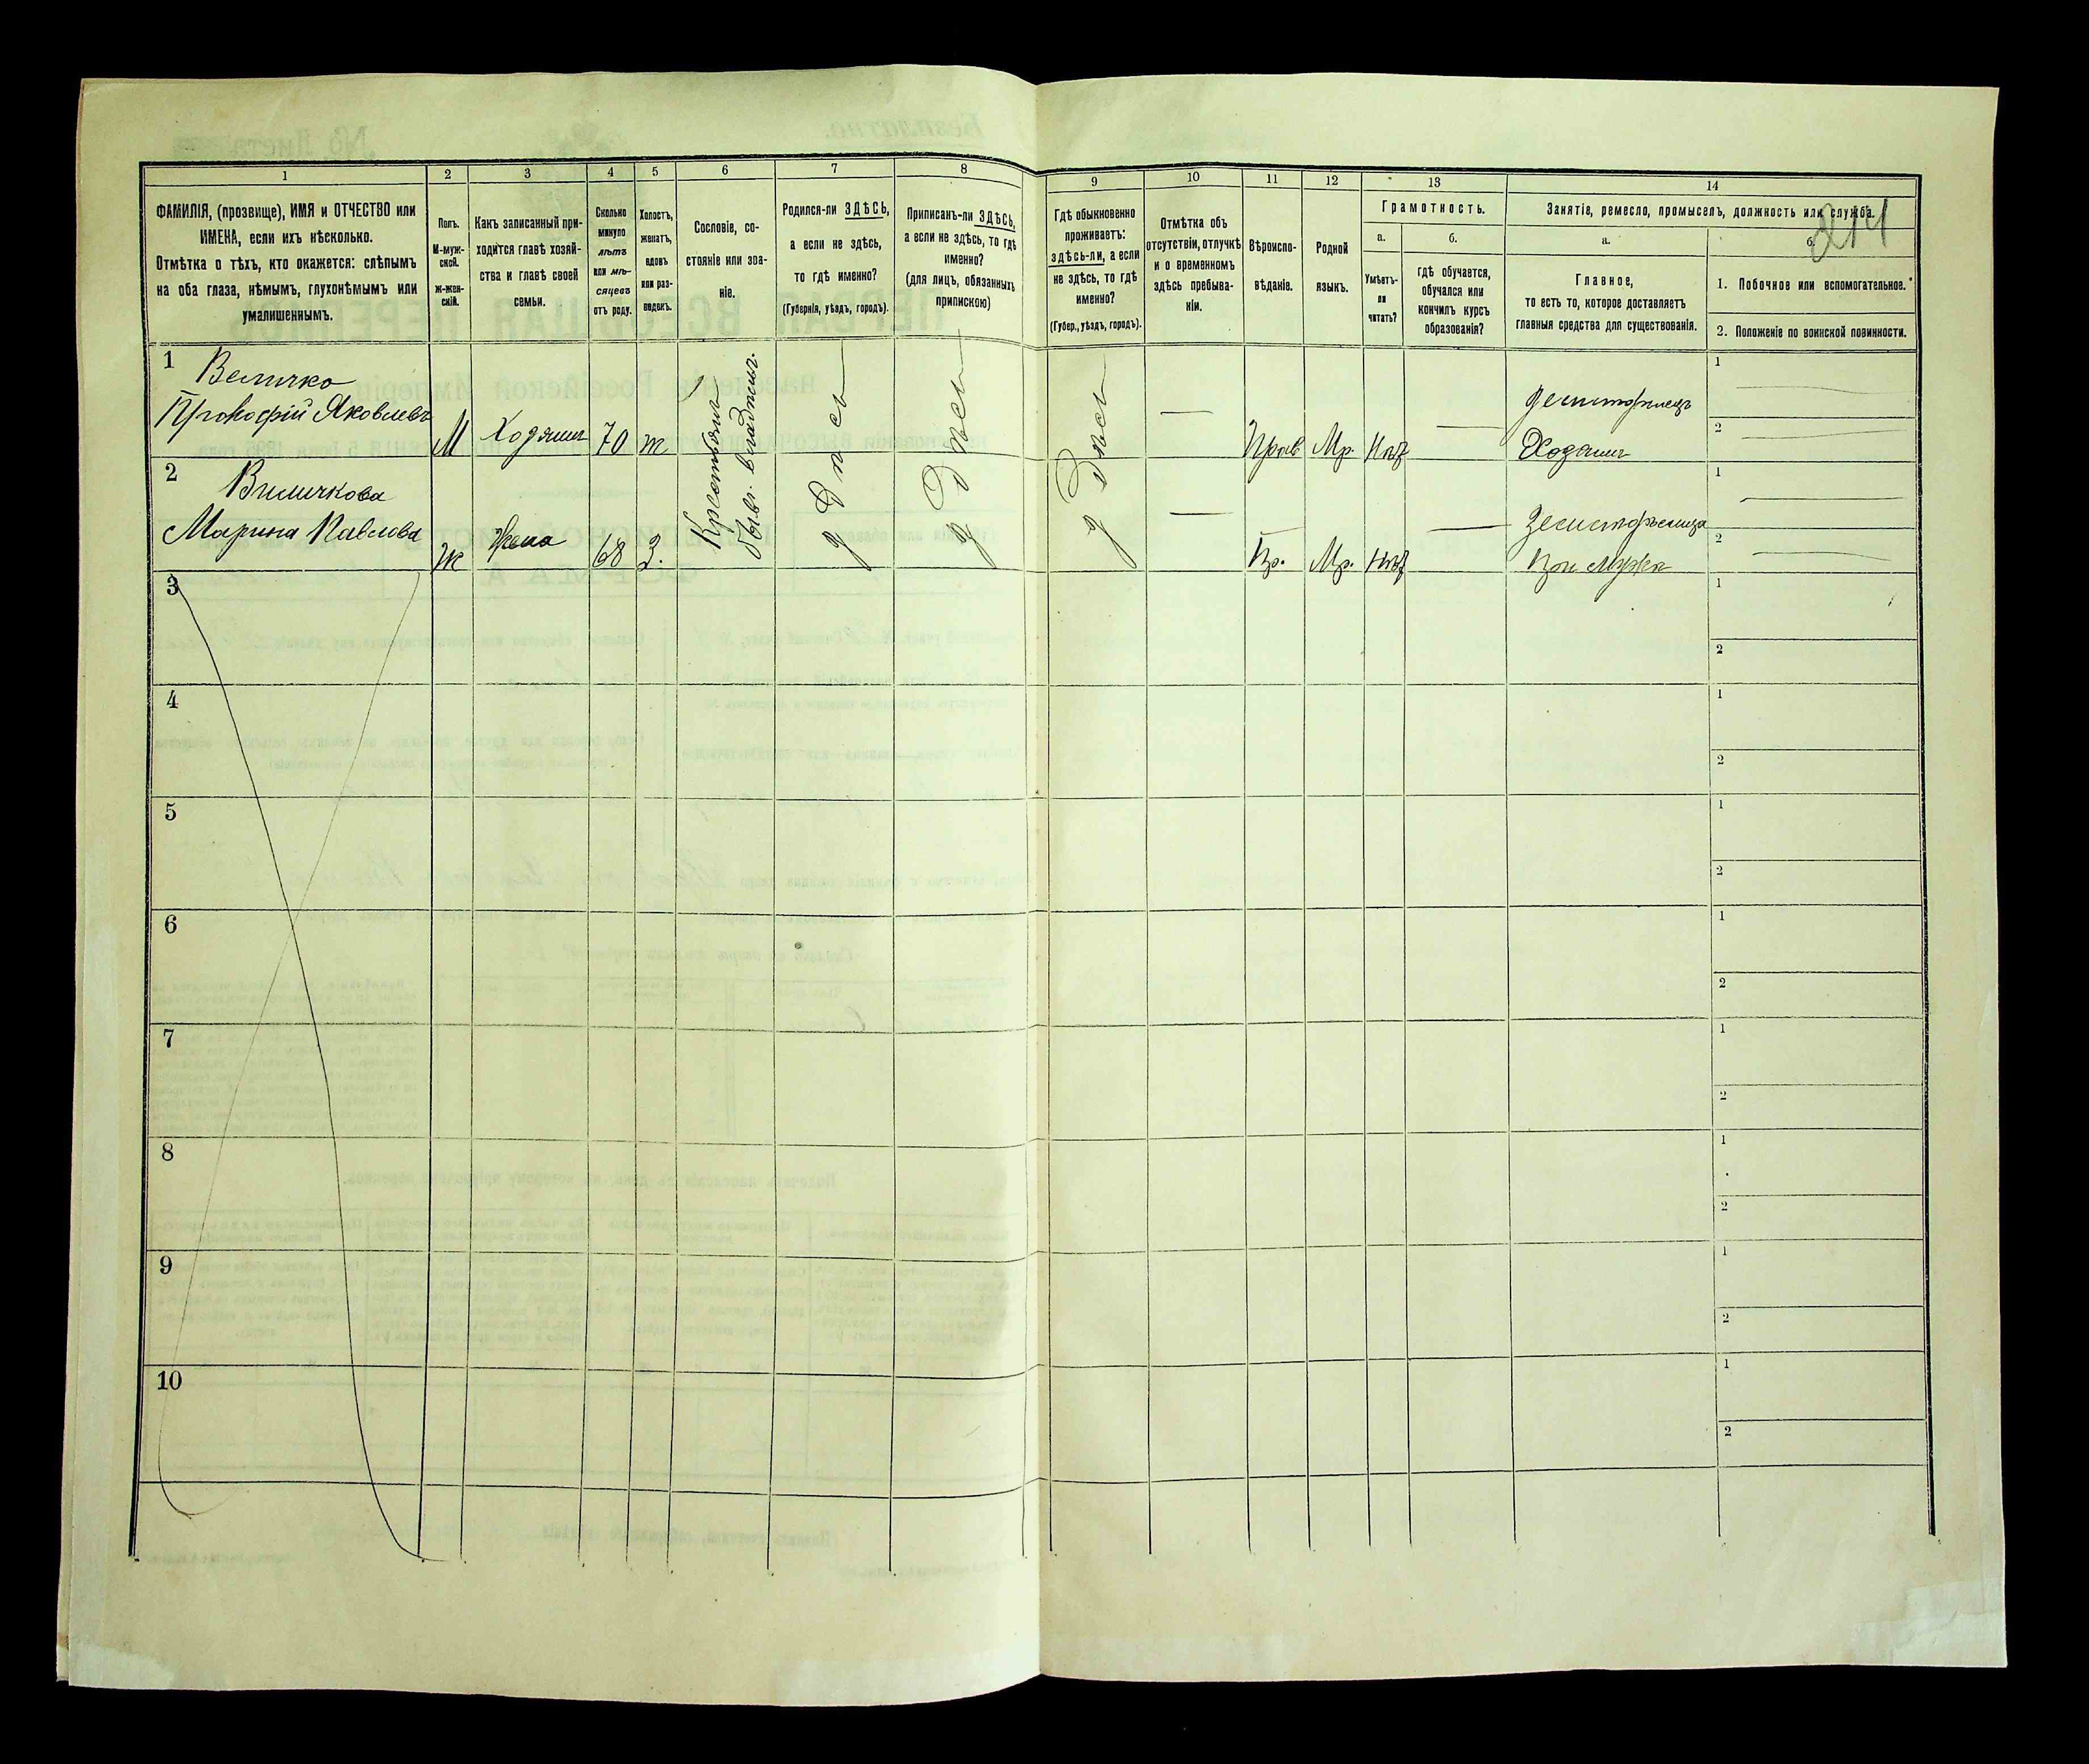 214
1 2 3 4 5 6 7 8 9 10 11 12 13 14
ФАМИЛІЯ, (прозвище), ИМЯ и ОТЧЕСТВО или
ИМЕНА, если ихъ нѣсколько.
Отмѣтка о тѣхъ, кто окажется: слѣпымъ
на оба глаза, нѣмымъ, глухонѣмымъ или
умалишеннымъ.
Полъ.
М-муж-
ской.
ж-жен-
скій.
Какъ записанный при-
ходится главѣ хозяй-
ства и главѣ своей
семьи.
Сколько
минуло
лѣтъ
или мѣ-
сяцевъ
отъ роду.
Холостъ,
женатъ,
вдовъ
или раз-
веденъ.
Сословіе, со-
стояніе или зва-
ніе.
Родился-ли ЗДѢСЬ,
а если не здѣсь,
то гдѣ именно?
(Губернія, уѣздъ, городъ).
Приписанъ-ли ЗДѢСЬ,
а если не здѣсь, то гдѣ
именно?
(для лицъ, обязанныхъ
припискою)
Гдѣ обыкновенно
проживаетъ:
здѣсь-ли, а если
не здѣсь, то гдѣ
именно?
(Губер., уѣздъ, городъ).
Отмѣтка объ
отсутствіи, отлучкѣ
и о временномъ
здѣсь пребыва-
ніи.
Вѣроиспо-
вѣданіе.
Родной
языкъ.
Грамотность.
а.
Умѣетъ-
ли
читать?
б.
гдѣ обучается,
обучался или
кончилъ курсъ
образованія?
Занятіе, ремесло, промыселъ, должность или служба.
а.
Главное,
то есть то, которое доставляетъ
главныя средства для существованія.
б.
1. Побочное или вспомогательное.
2. Положеніе по воинской повинности.
1
Величко
Прокофій Яковлевъ
М
Хозяинъ
70
ж
Крестьян
быв. владѣльч.
Здѣсь
Здѣсь
Здѣсь
Прав
Мр.
Нѣт
земледѣлецъ
Хозяинъ
1
2
2
Виличкова
Марина Павлова
Ж
Жена
68
З.
Пр.
Мр.
Нѣт
При мужѣ
1
2
3
1
2
4
1
2
5
1
2
6
1
2
7
1
2
8
1
2
9
1
2
10
1
2